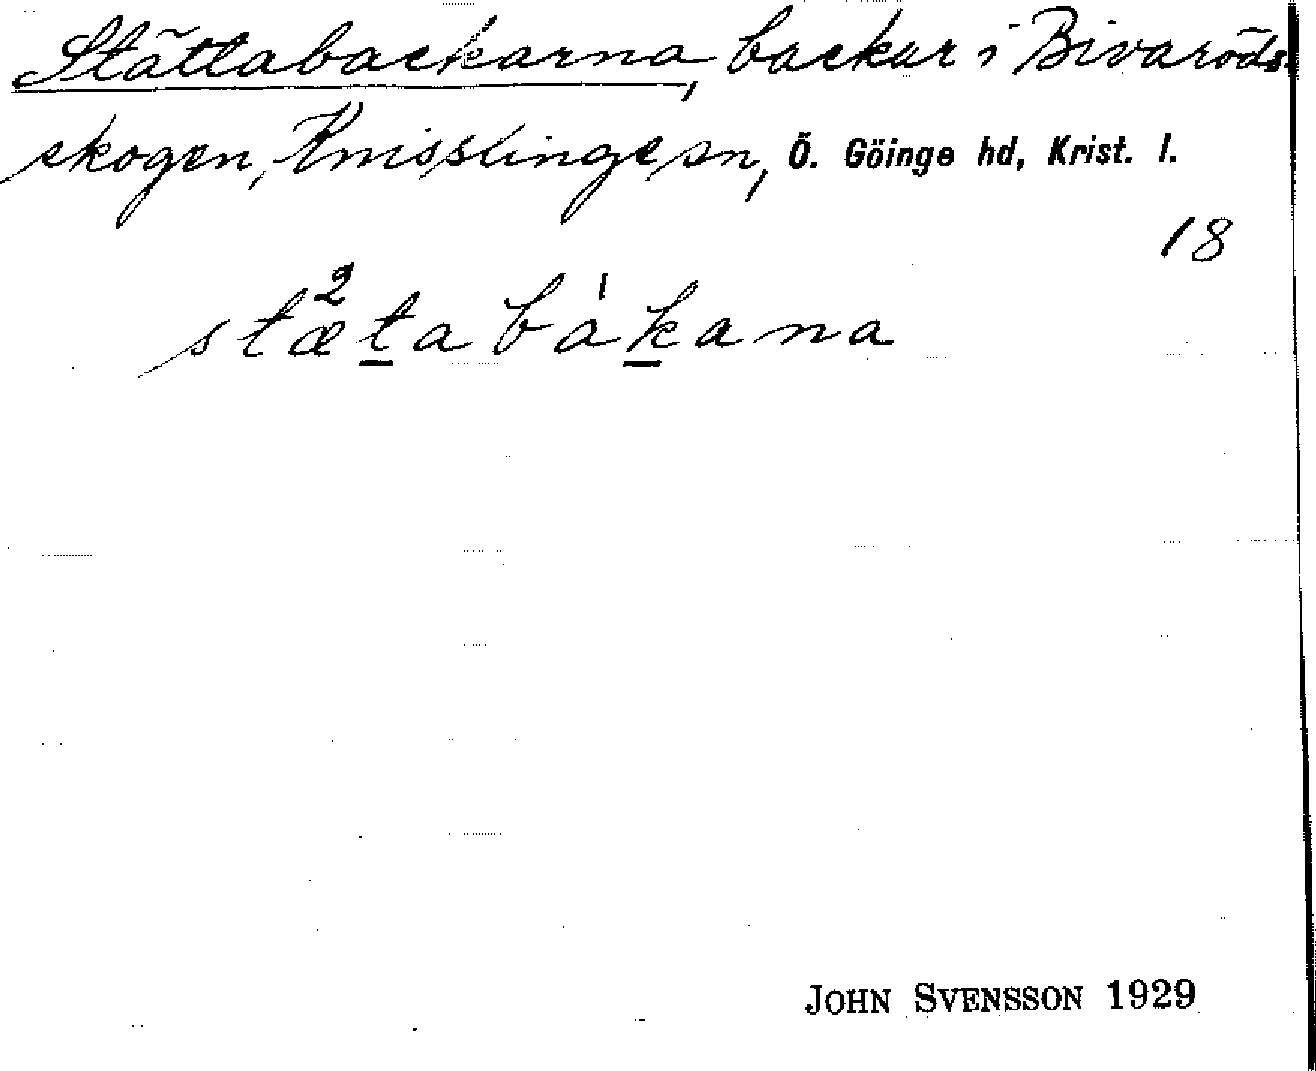 Stättabackarna, backar i Bivaröds-
skogen, Knisslinge sn, Ö. Göinge hd, Krist. l.
18
stæ²tabákana
JOHN SVENSSON 1929